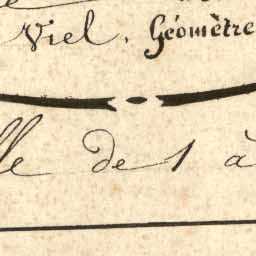 Viel. Géomètre
lle de 1 à